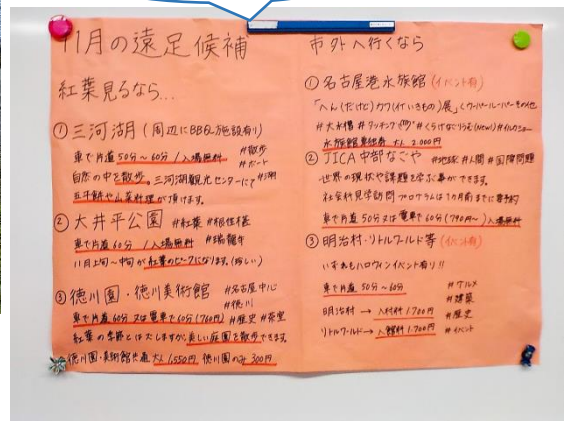 11月の遠足候補
紅葉見るなら...
①三河湖(周辺にBBQ施設有り)
車で片道50分〜60分/入場無料 #散歩
#ボート
自然の中を散歩。三河湖観光センターにて
五平餅や山菜料理が頂けます。
②大井平公園 #紅葉 #根性桜
車で片道60分/入場無料 #瑞龍寺
11月上旬〜中旬が紅葉のピークになります。(珍しい)
③徳川園・徳川美術館 #名古屋中心
#徳川
車で片道60分又は電車で60分(760円) #歴史 #茶室
紅葉の季節とは大しますが、美しい庭園を散歩できます。
徳川園・美術館共通大人1,550円 徳川園のみ300円
市外へ行くなら
①名古屋港水族館(イベント有)
「へん(だけど)カワ(イイいきもの)展」
#大水槽 #タッチング
水族館単独券 大人2,000円
②JICA中部なごや #地球 #人間 #国際問題
世界の現状や課題を学ぶ事ができます。
社会科見学訪問プログラムは1カ月前までに要予約
車で片道50分又は電車で60分(790円〜)入場無料
③明治村・リトルワールド等(イベント有)
いずれもハロウィンイベント有り!!
車で片道50分〜60分 #グルメ
#建築
明治村→入村料1,700円 #歴史
リトルワールド→入館料1,700円 #イベント